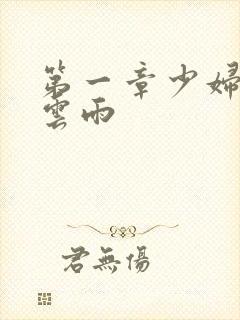 第一章少婦
雲雨
君無傷